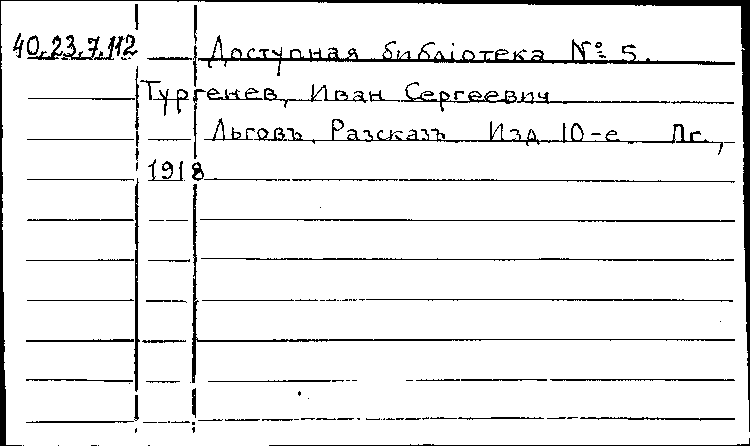 40.23.7.112 Доступная библіотека № 5.
Тургенев, Иван Сергеевич
Льговъ. Разсказъ Изд 10-е Пг.,
1918